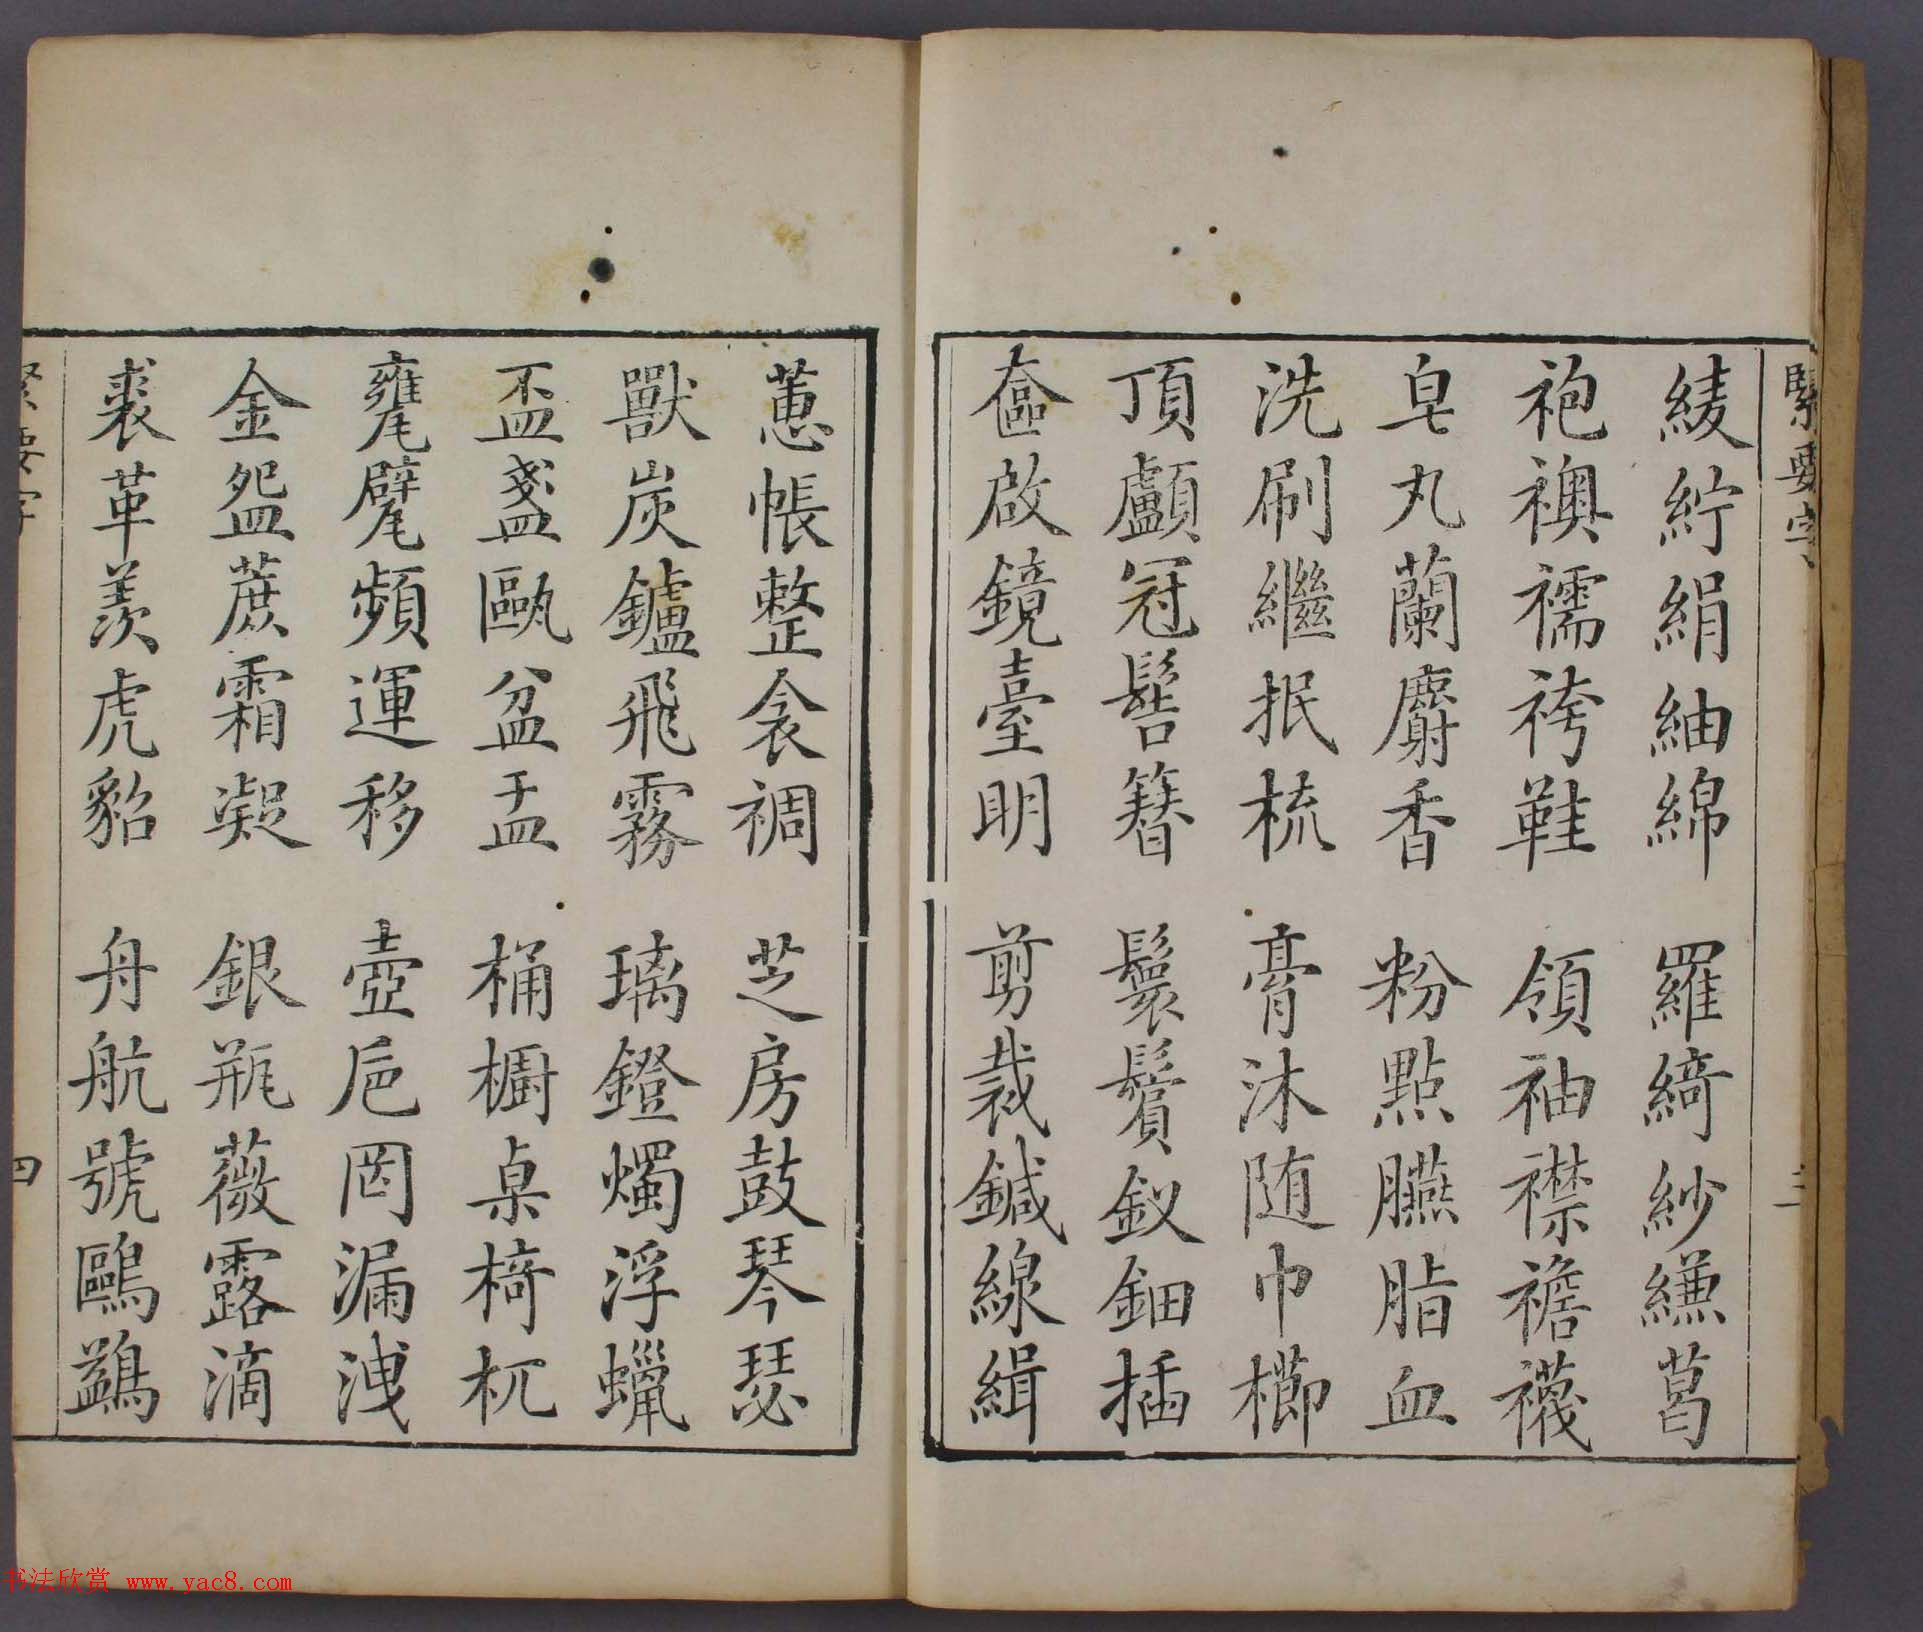 緊要字
三
綾紵絹紬綿 羅綺紗縑葛
袍襖襦袴鞋 領袖襟襜襪
皂丸蘭麝香 粉點臙脂血
洗刷繼抿梳 膏沐随巾櫛
頂顱冠髻簪 鬟鬢釵鈿插
奩啟鏡臺明 剪裁鍼線緝
蕙帳整衾裯 芝房鼓琴瑟
獸炭鑪飛霧 璃鐙燭浮蠟
盃盞甌盆盂 桶櫥桌椅杌
頻運移 壺卮罔漏洩
金盌蔗霜凝 銀瓶薇露滴
裘革羨虎貂 舟航號鷗鷁
緊要字
四
书法欣赏 www.yac8.com